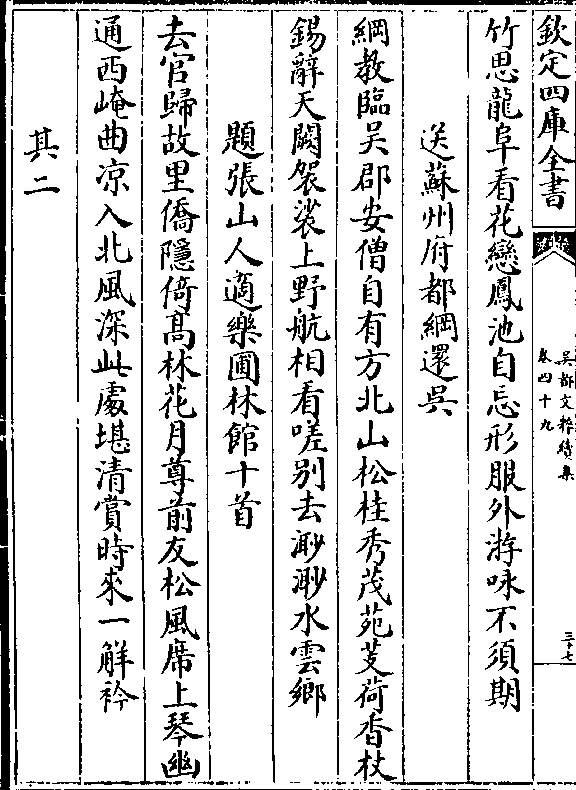 欽定四庫全書
吳都文粹續集
卷四十九
三十七
竹思龍阜看花戀鳳池自忘形服外游咏不須期
送蘇州府都綱還吳
綱教臨吳郡安僧自有方北山松桂秀茂苑芰荷香杖
錫辭天闕袈裟上野航相看嗟别去渺渺水雲鄉
題張山人適樂圃林館十首
去官歸故里僑隱倚髙林花月尊前友松風席上琴幽
通西崦曲凉入北風深此處堪清賞時來一解衿
其二